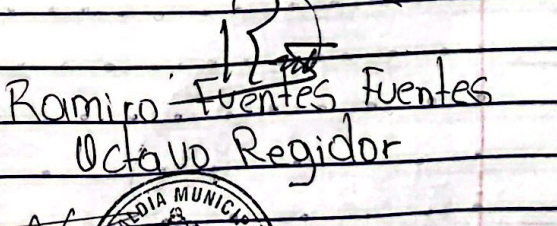 Ramiro Fuentes Fuentes
Octavo Regidor
ALDIA MUNICI